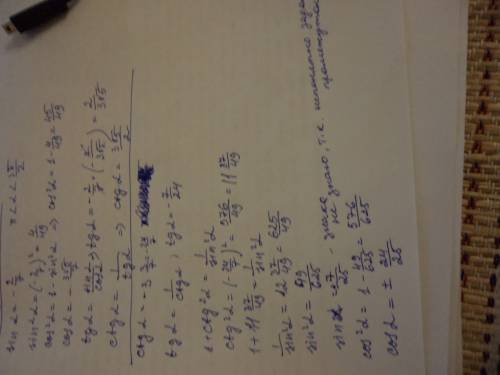 sin α = - 2/7   π < α < 3π/2
sin²α = (- 2/7)² = 4/49
cos²α = 1 - sin²α ⇒ cos²α = 1 - 4/49 = 45/49
cos α = - 3√5/7
tg α = sin α/cos α ; tg α = - 2/7 · (- 7/3√5) = 2/3√5
ctg α = 1/tg α ⇒ ctg α = 3√5/2
ctg α = - 3 3/7 = - 24/7
tg α = 1/ctg α ; tg α = - 7/24
1 + ctg²α = 1/sin²α
ctg²α = (- 24/7)² = 576/49 = 11 37/49
1 + 11 37/49 = 1/sin²α
1/sin²α = 12 37/49 = 625/49
sin²α = 49/625
sin α = 7/25 - знака не знаю, т.к.
cos²α = 1 - 49/625 = 576/625
cos α = ± 24/25